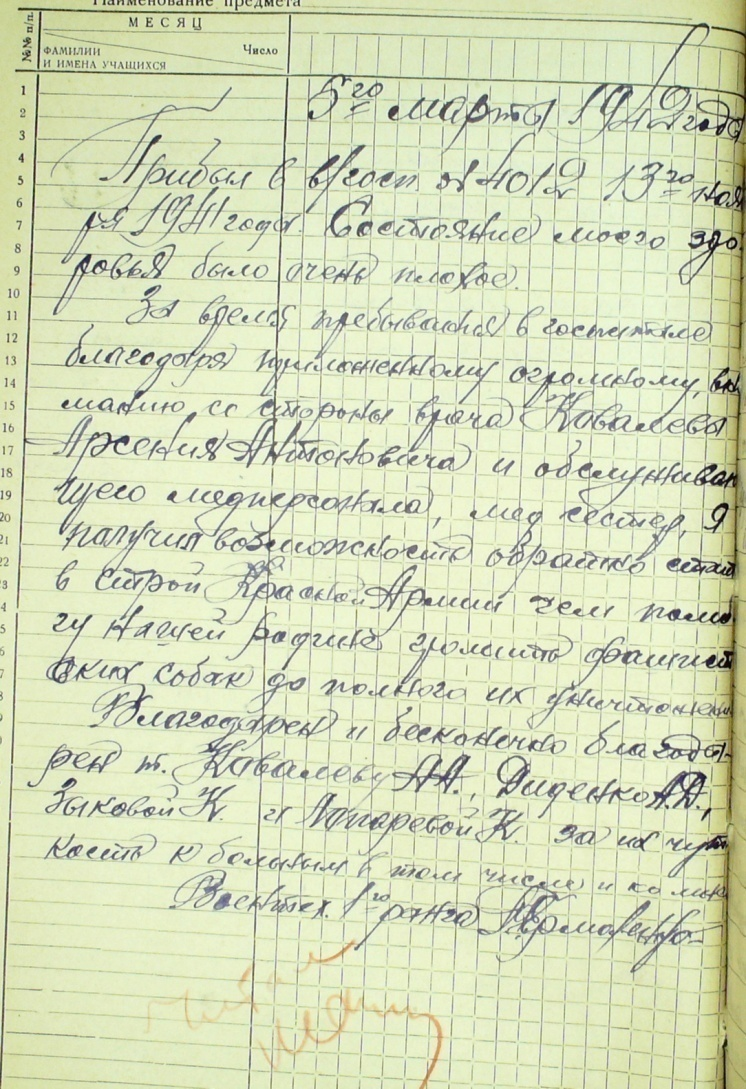 Наименование предмета
№№ п/п.
МЕСЯЦ
Число
ФАМИЛИИ
И ИМЕНА УЧАЩИХСЯ
1
2
3
4
5
6
7
8
9
10
11
12
13
14
15
16
17
18
19
20
21
22
23
5го марта 1942 года
Прибыл в в/госп № 4012 13го нояб
ря 1941 года. Состояние моего здо-
ровья было очень плохое.
За время пребывания в госпитале
благодаря приложенному огромному, вни
манию со стороны врача Ковалева
Арсения Антоновича и обслуживаю
щего медперсонала, мед сестер, я
получил возможность обратно стат
в строй Красной Армии чем помо
гу нашей родине громить фашист
ских собак до полного их уничтожения
Благодарен и бесконечно благода-
рен т. Ковалеву А.А., Диденко А.Д.,
Зыковой К. и Лапаревой К. за их чут
кость к больным в том числе и ко мне
Воентех. 1го ранга
Читал